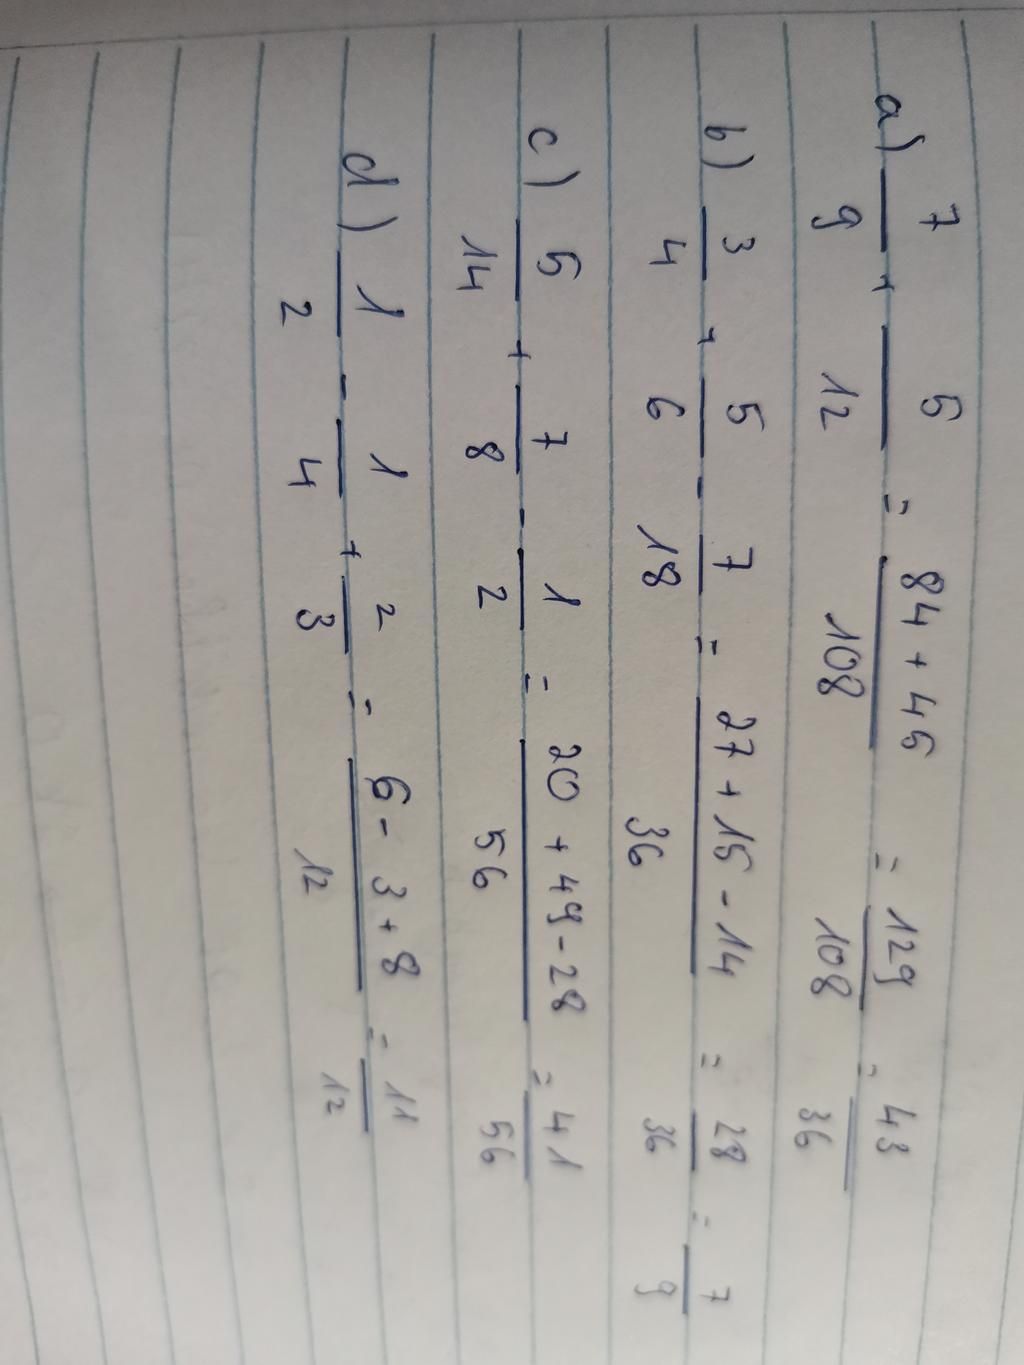 a) 7/9 + 5/12 = (84 + 45)/108 = 129/108 = 43/36
b) 3/4 + 5/6 - 7/18 = (27 + 15 - 14)/36 = 28/36 = 7/9
c) 5/14 + 7/8 - 1/2 = (20 + 49 - 28)/56 = 41/56
d) 1/2 - 1/4 + 2/3 = (6 - 3 + 8)/12 = 11/12